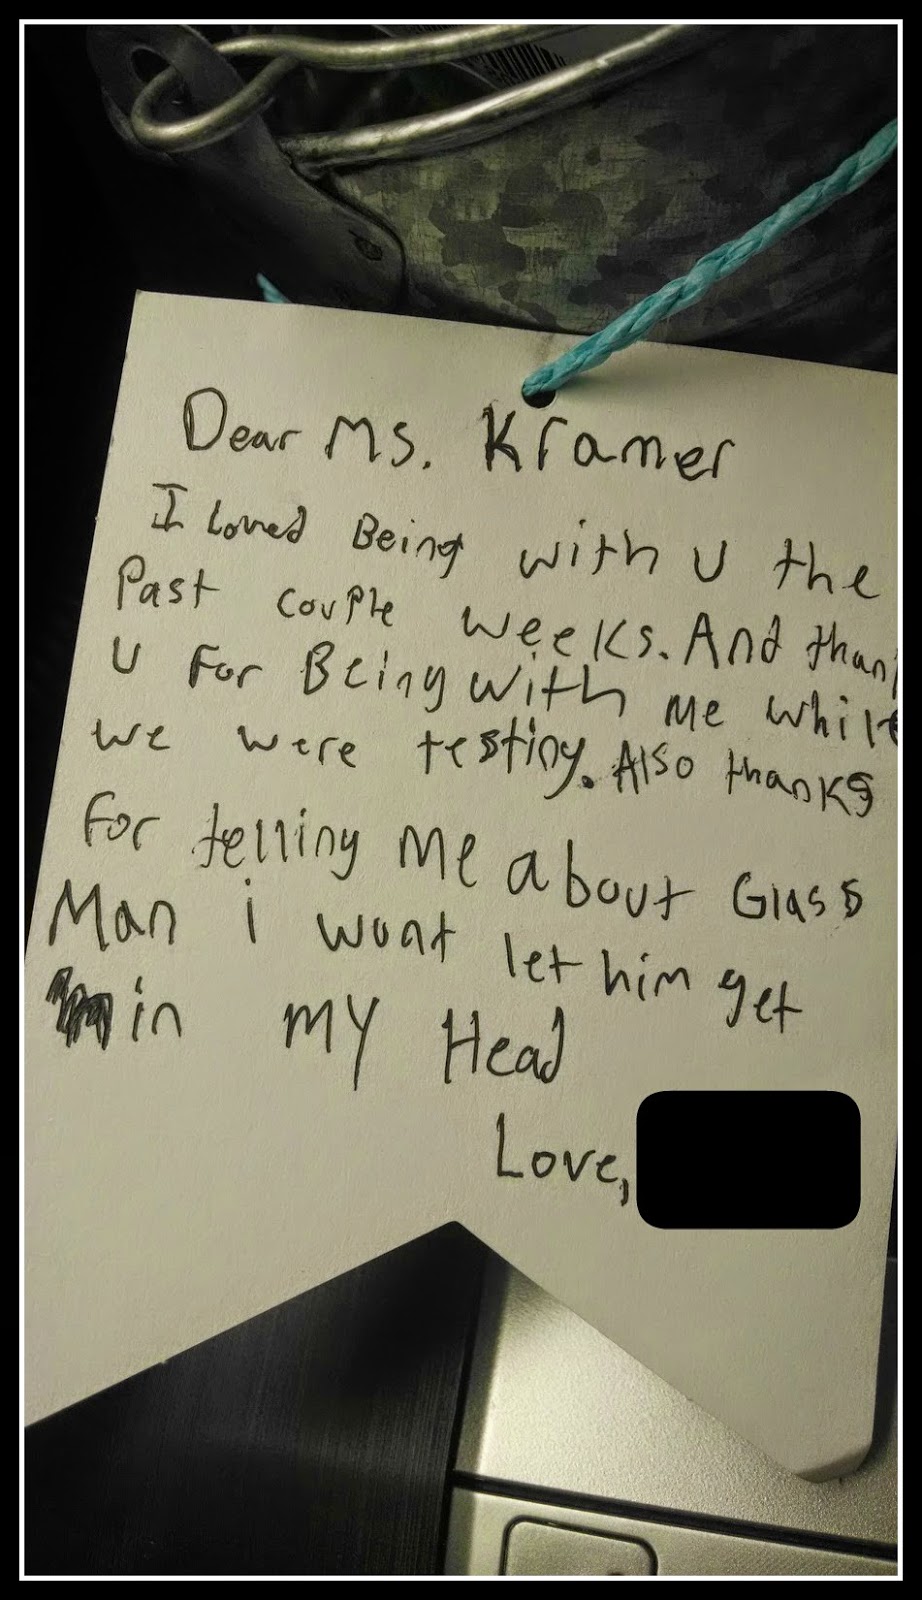 Dear Ms. Kramer
I Loved Being with U the
Past couple weeks. And than
U For Being with me while
we were testing. Also thanks
For telling Me about Glass
Man i wont let him get
in MY Head
Love,